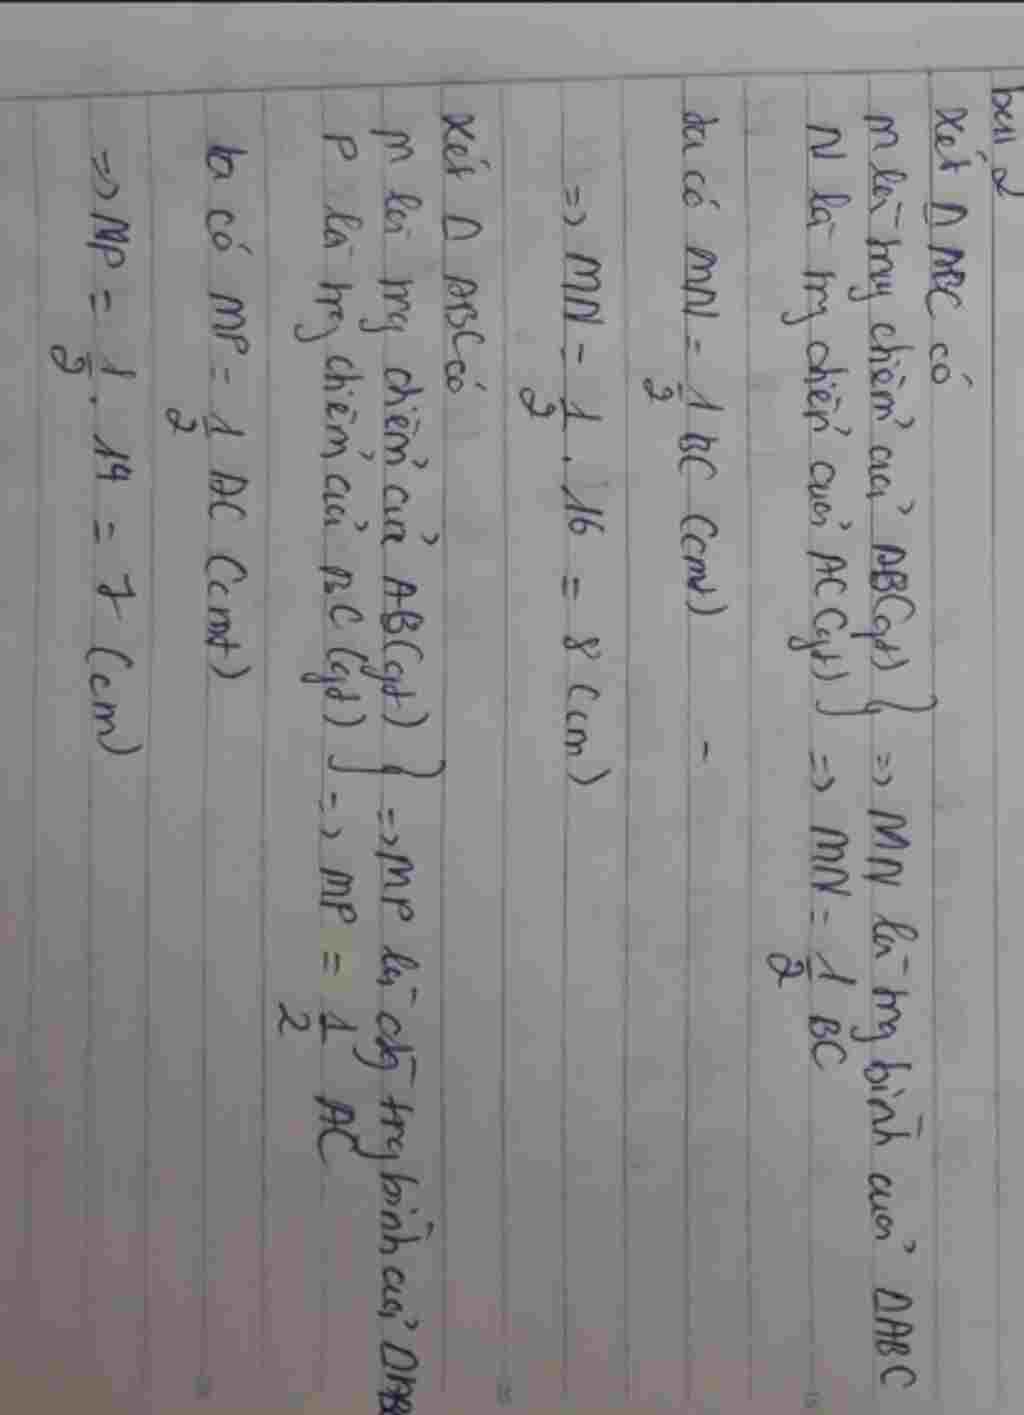 bài 2
xét ∆ ABC có
M là trg điểm của AB (gt) } => MN là trg bình của ∆ABC
N là trg điểm của AC (gt) } => MN = 1/2 BC
ta có MN = 1/2 BC (cmt)
=> MN = 1/2 . 16 = 8 (cm)
xét ∆ ABC có
M là trg điểm của AB (gt) } => MP là đg trg bình của ∆ABC
P là trg điểm của BC (gt) } => MP = 1/2 AC
ta có MP = 1/2 AC (cmt)
=> MP = 1/2 . 14 = 7 (cm)